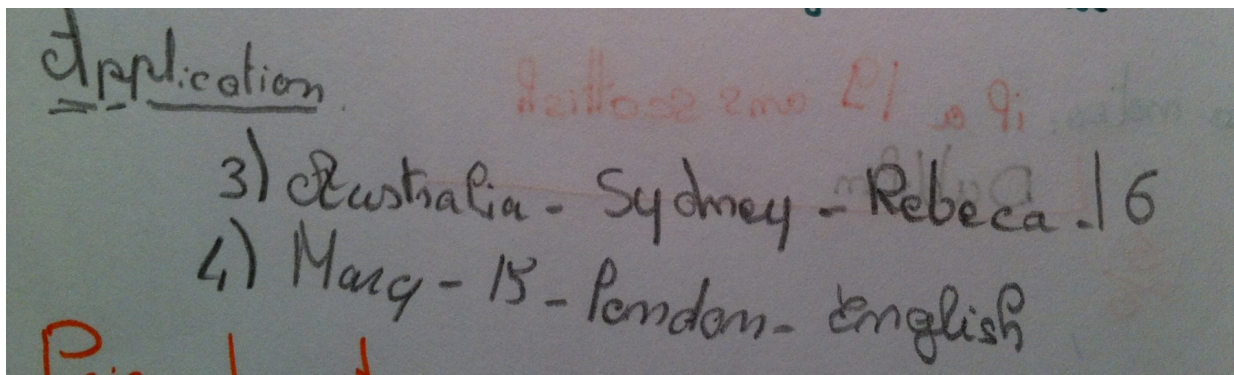 Application
3) Australia - Sydney - Rebeca - 16
4) Marq - 15 - London - English